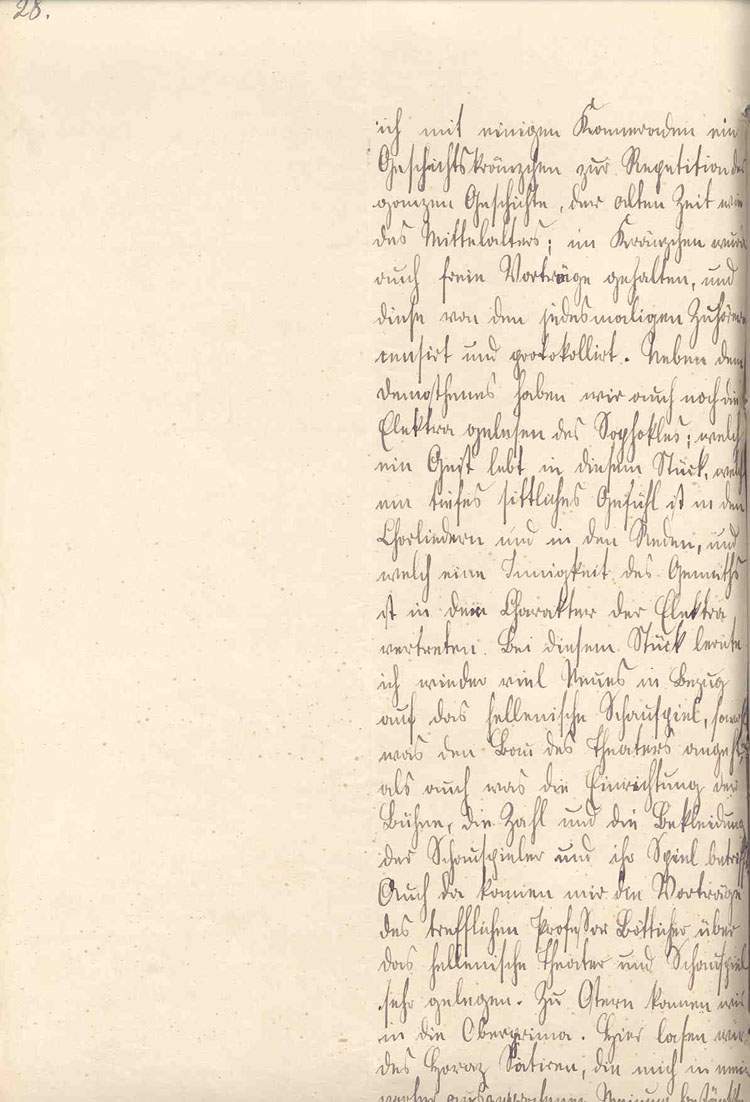 28.
ich mit einigen Kameraden ein
Geschichtskränzchen zur Repetition der
ganzen Geschichte, der alten Zeit wie
des Mittelalters; im Kränzchen wurden
auch freie Vorträge gehalten, und
diese von den jedesmaligen Zuhörern
censirt und protokollirt. Neben dem
Demosthenes haben wir auch noch die
Elektra gelesen des Sophokles; welch
ein Geist lebt in diesem Stück, welch
ein tiefes sittliches Gefühl ist in den
Chorliedern und in den Reden, und
welch eine Innigkeit des Gemüths
ist in dem Charakter der Elektra
vertreten. Bei diesem Stück lernte
ich wieder viel Neues in Bezug
auf das hellenische Schauspiel, sowohl
was den Bau des Theaters angeht,
als auch was die Einrichtung der
Bühne, die Zahl und die Bekleidung
der Schauspieler und ihr Spiel betrifft.
Auch da kamen mir die Vorträge
des trefflichen Professor Bötticher über
das hellenische Theater und Schauspiel
sehr gelegen. Zu Ostern kamen wir
in die Oberprima. Hier lasen wir
des Horaz Satiren, die mich in meiner